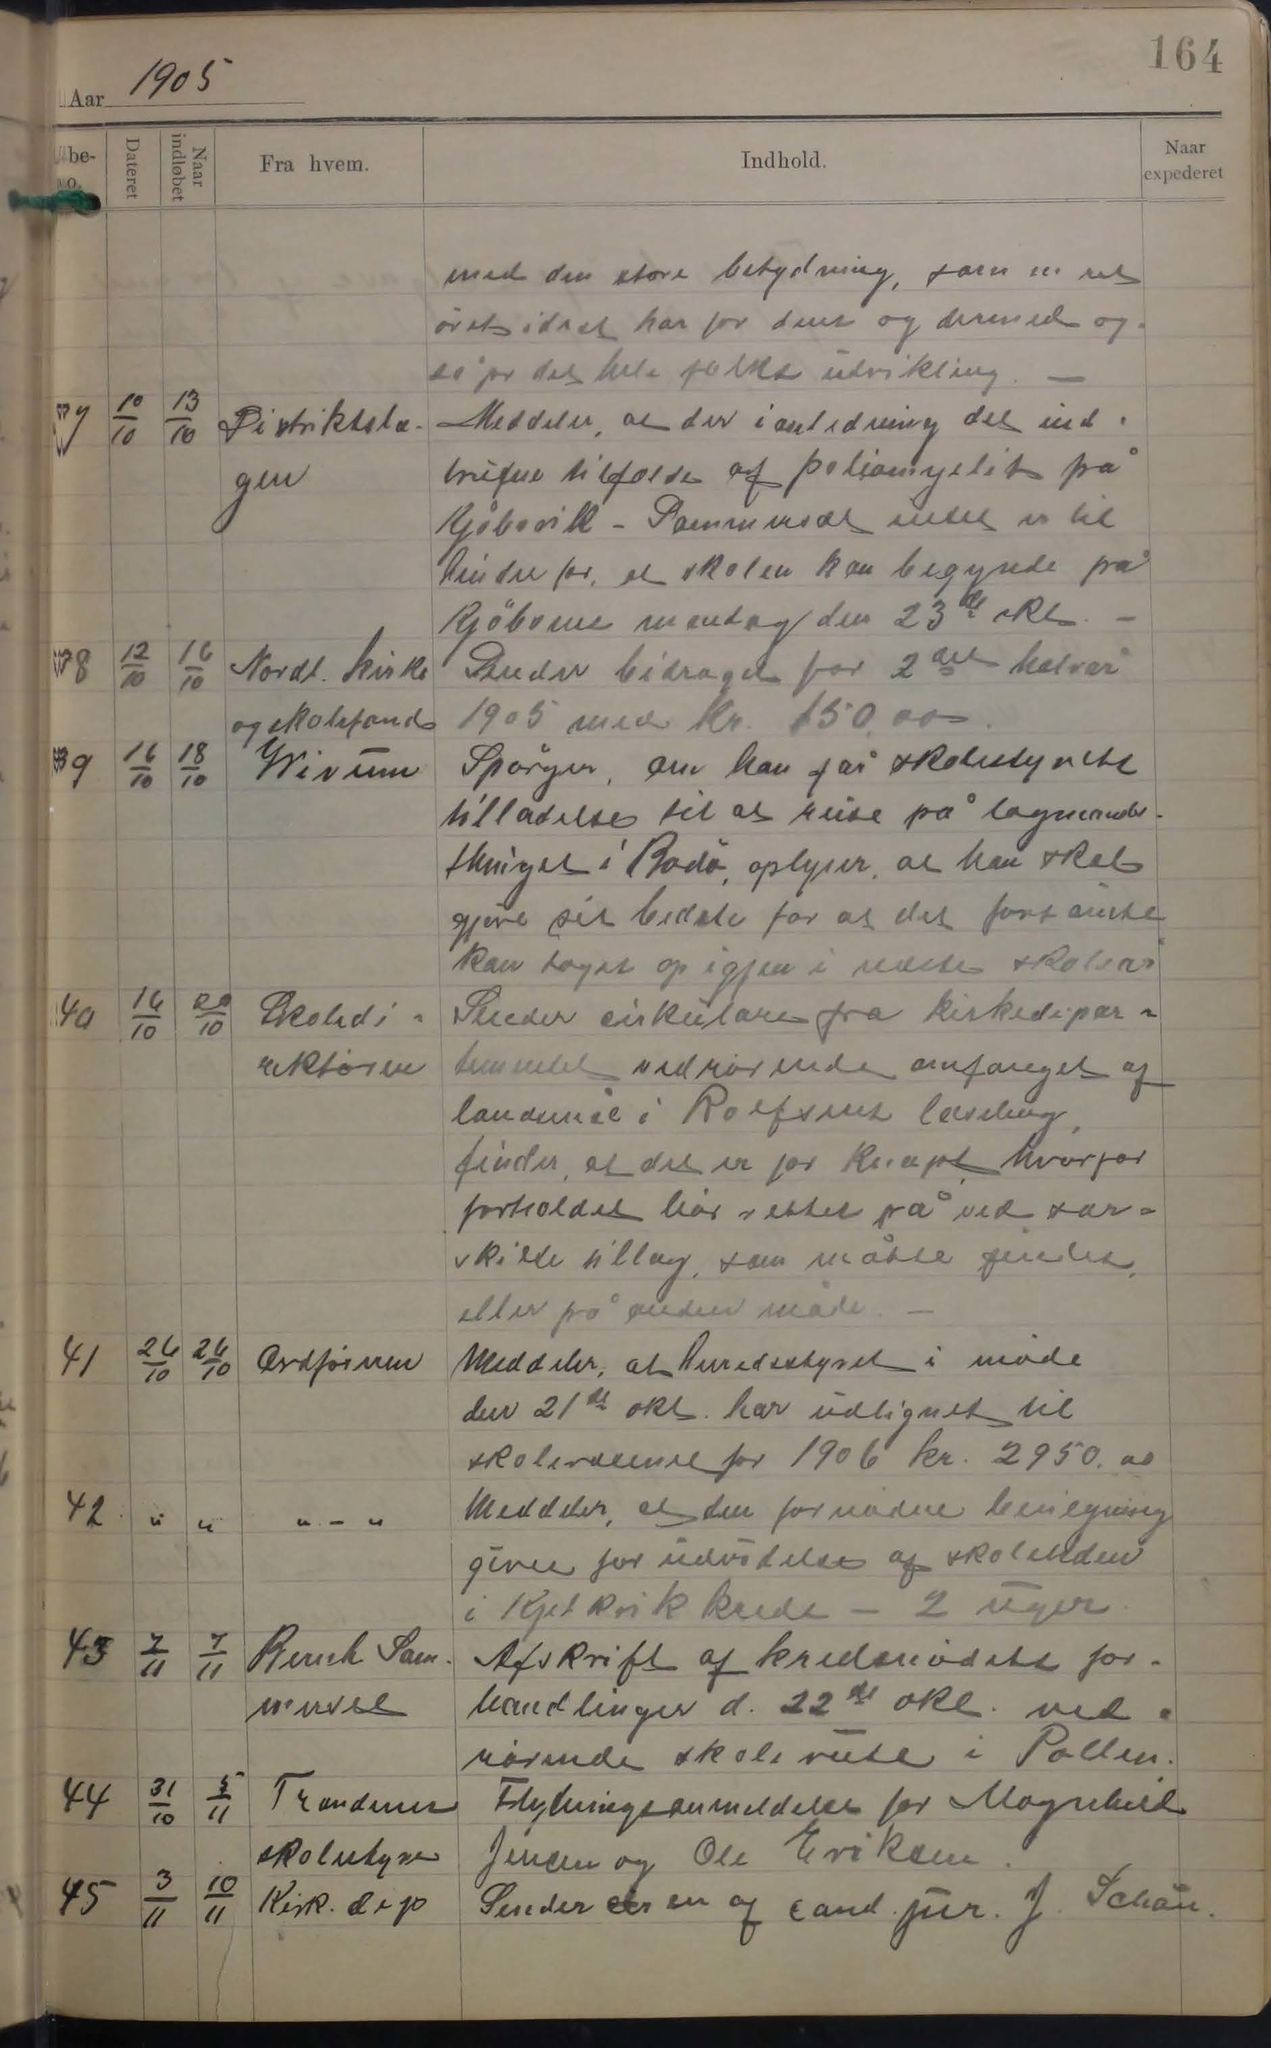 164
Aar 1905
be-
no.
Dateret
Naar indløbet
Fra hvem.
Indhold.
Naar expederet
med den store betydning, som
idræt har for dens og dermed og-
så for det hele folks udvikling. —
7 10/10 13/10 Distriktslæ- Meddeler, at der i anledning det ind-
gen trufne tilfælde af poliomyelit på
Kjöbsvik - intet er til
hinder for, at skolen kan begynde på
Kjöbsnes mandag den 23de okt. -
8 12/10 16/10 Nordl. kirke Sender bidraget for 2det halvår
og skolefond 1905 med kr. 150.00.
9 16/10 18/10 Spörger, om han får skolestyrets
tilladelse til at reise på lagmands-
thinget i Bodö, oplyser, at han skal
gjöre sit bedste for at det forsömte
kan tages op igjen i næste skoleår
40 16/10 20/10 Skoledi- Sender cirkulære fra kirkedepar-
rektören tementet vedrörende omfanget af
landsmål i Rolfsens læsebog,
finder, at det er for knapt, hvorfor
forholdet bör rettes på ved sær-
skilte tillæg, som måtte findes,
eller på anden måde. -
41 26/10 26/10 Ordföreren Meddeler, at herredsstyret i möde
den 21de okt. har udlignet til
skolevæsenet for 1906 kr. 2950.00
42 " " " - " Meddeler, at den fornödne bevilgning
givee for udvidelse af skoletiden
i Kjelkvik kreds - 2 uger.
43 7/11 7/11 Afskrift af kredsmödets for-
handlinger d. 22de okt. ved-
rörende skoleruten i Pollen.
44 31/10 5/11 Trondenes Flytningsanmeldelse for Magnhild
skolestyre Jensen og Ole Eriksen.
45 3/11 10/11 Kirk. dep Sender en af cand. jur. J. Schön.